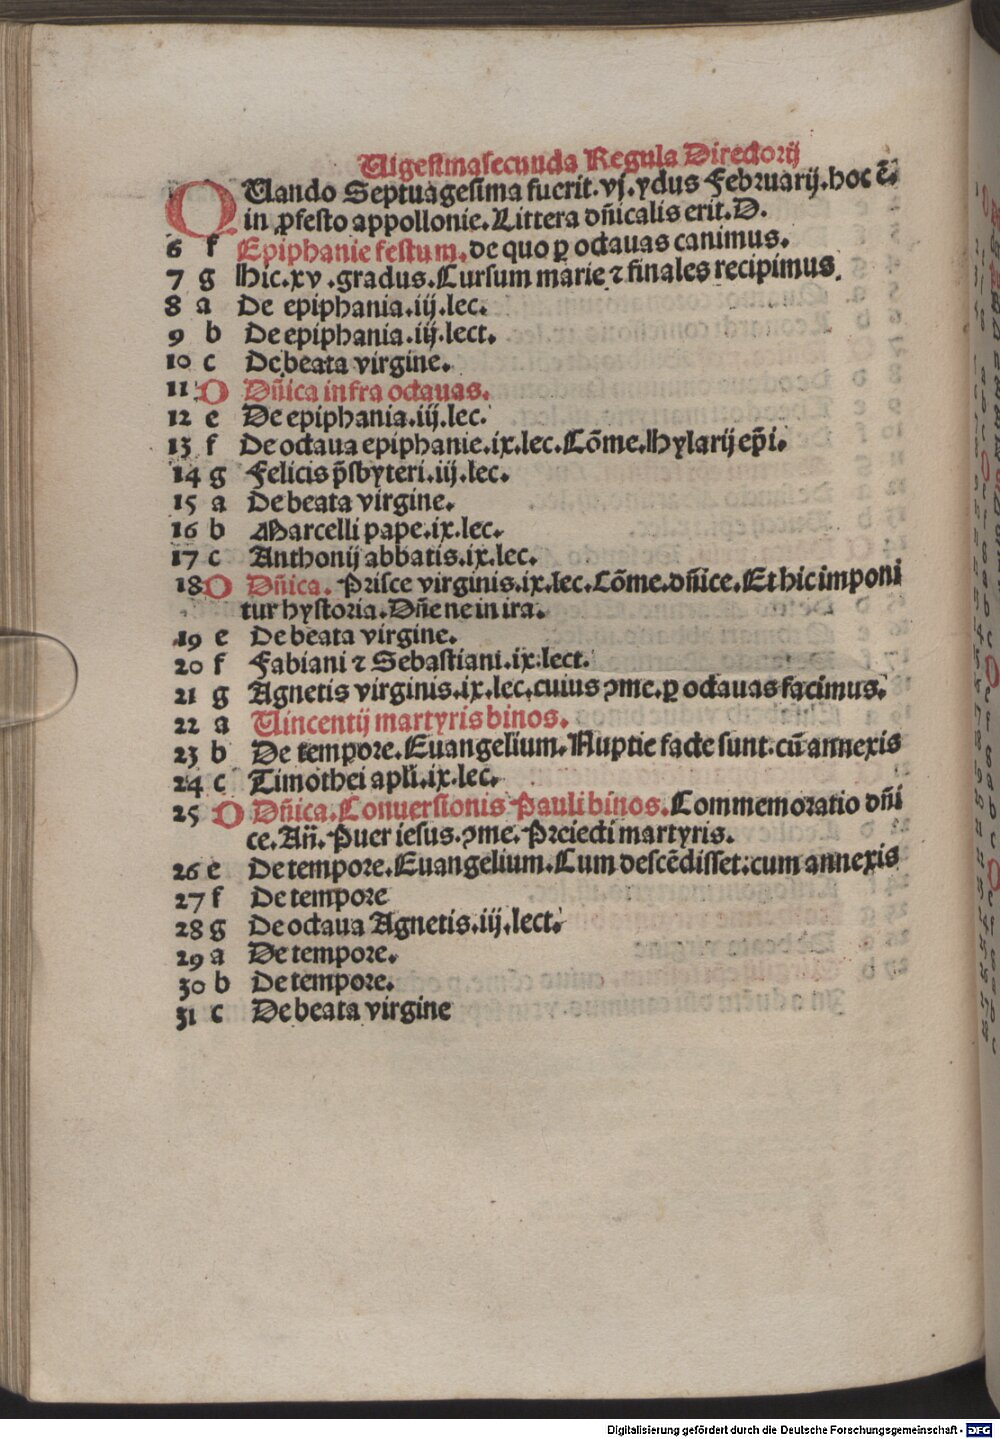 Uigesimasecunda Regula Directorij
QUando Septuagesima fuerit.vj.ydus Februarij.hoc ē.
in ꝓfesto appollonie.Littera dñicalis erit.D.
6 f Epiphanie festum.de quo ꝑ octauas canimus.
7 g Hic.xv.gradus.Cursum marie ⁊ finales recipimus.
8 a De epiphania.iij.lec.
9 b De epiphania.iij.lect.
10 c De beata virgine.
11 D Dñica infra octauas.
12 e De epiphania.iij.lec.
13 f De octaua epiphanie.ix.lec.Cōme.Hylarij ep̄i.
14 g Felicis p̄sbyteri.iij.lec.
15 a De beata virgine.
16 b Marcelli pape.ix.lec.
17 c Anthonij abbatis.ix.lec.
18 D Dñica. Prisce virginis.ix.lec.Cōme.dñice.Et hic imponi
tur hystoria.Dñe ne in ira.
19 e De beata virgine.
20 f Fabiani ⁊ Sebastiani.ix.lect.
21 g Agnetis virginis.ix.lec.cuius ꝯme.ꝑ octauas facimus.
22 a Uincentij martyris binos.
23 b De tempore.Euangelium.Nuptie facte sunt.cū annexis
24 c Timothei apl̄i.ix.lec.
25 D Dñica.Conuersionis Pauli binos.Commemoratio dñi
ce.Añ.Puer iesus.ꝯme.Preiecti martyris.
26 e De tempore.Euangelium.Cum descēdisset:cum annexis
27 f De tempore
28 g De octaua Agnetis.iij.lect.
29 a De tempore.
30 b De tempore.
31 c De beata virgine
Digitalisierung gefördert durch die Deutsche Forschungsgemeinschaft - DFG